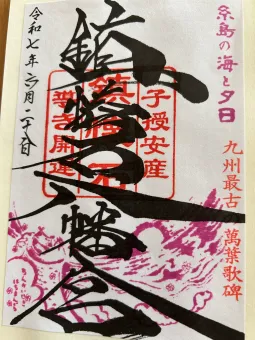 糸島の海と夕日
九州最古 萬葉歌碑
子授安産
鎮懐石
導き開運
鎮懐石八幡宮
令和七年六月